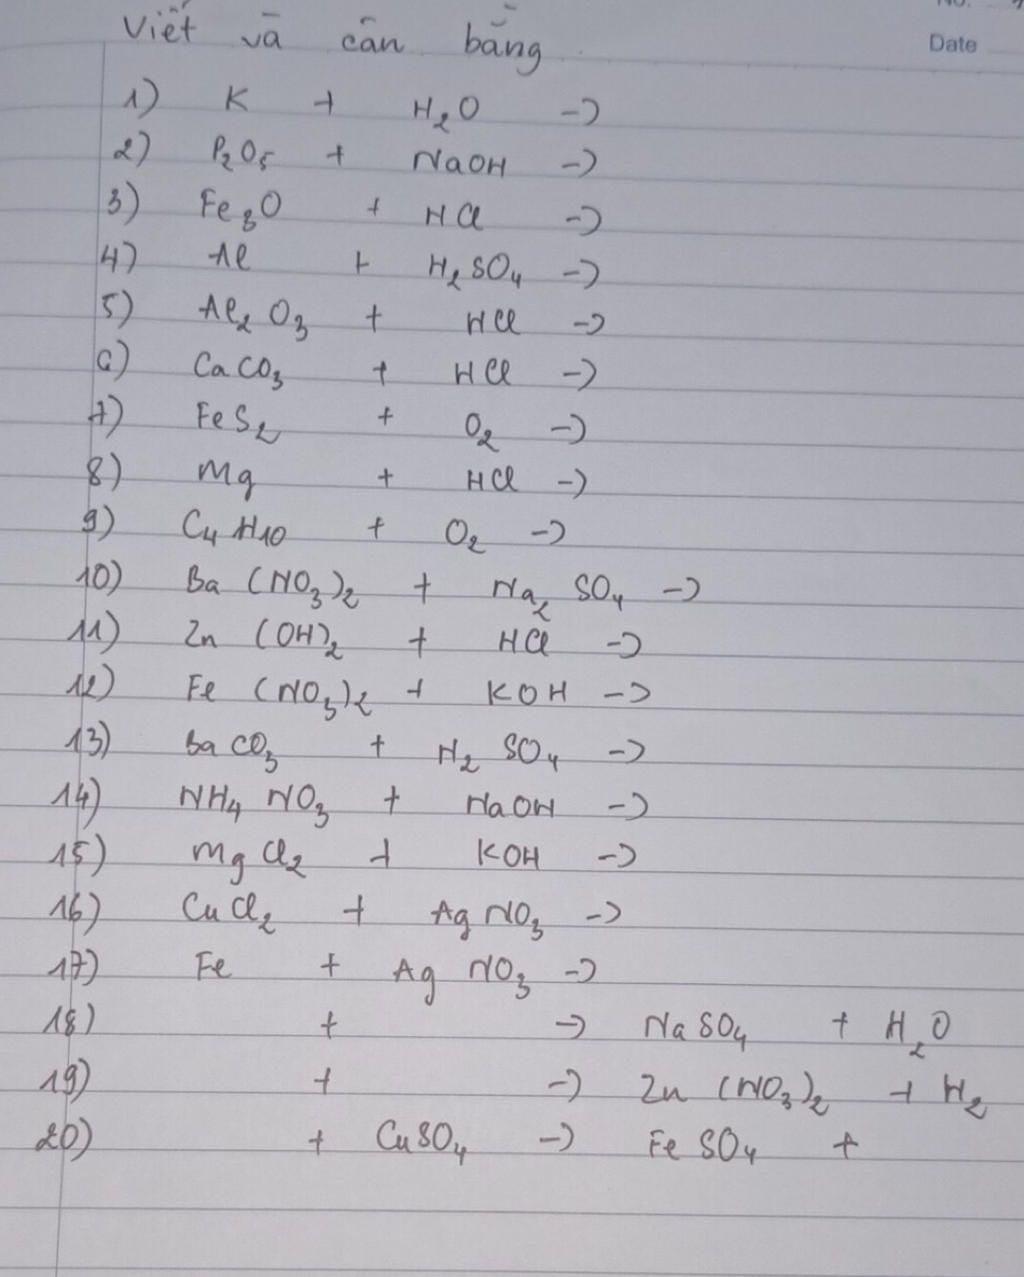 Viết và cân bằng
Date
1) K + H₂O ->
2) P₂O₅ + NaOH ->
3) Fe₃O + HCl ->
4) Al + H₂SO₄ ->
5) Al₂O₃ + HCl ->
6) CaCO₃ + HCl ->
7) FeS₂ + O₂ ->
8) Mg + HCl ->
9) C₄H10 + O₂ ->
10) Ba(NO₃)₂ + Na₂SO₄ ->
11) Zn(OH)₂ + HCl ->
12) Fe(NO₃)₂ + KOH ->
13) BaCO₃ + H₂SO₄ ->
14) NH₄NO₃ + NaOH ->
15) MgCl₂ + KOH ->
16) CuCl₂ + AgNO₃ ->
17) Fe + AgNO₃ ->
18) + -> NaSO₄ + H₂O
19) + -> Zn(NO₃)₂ + H₂
20) + CuSO₄ -> FeSO₄ +